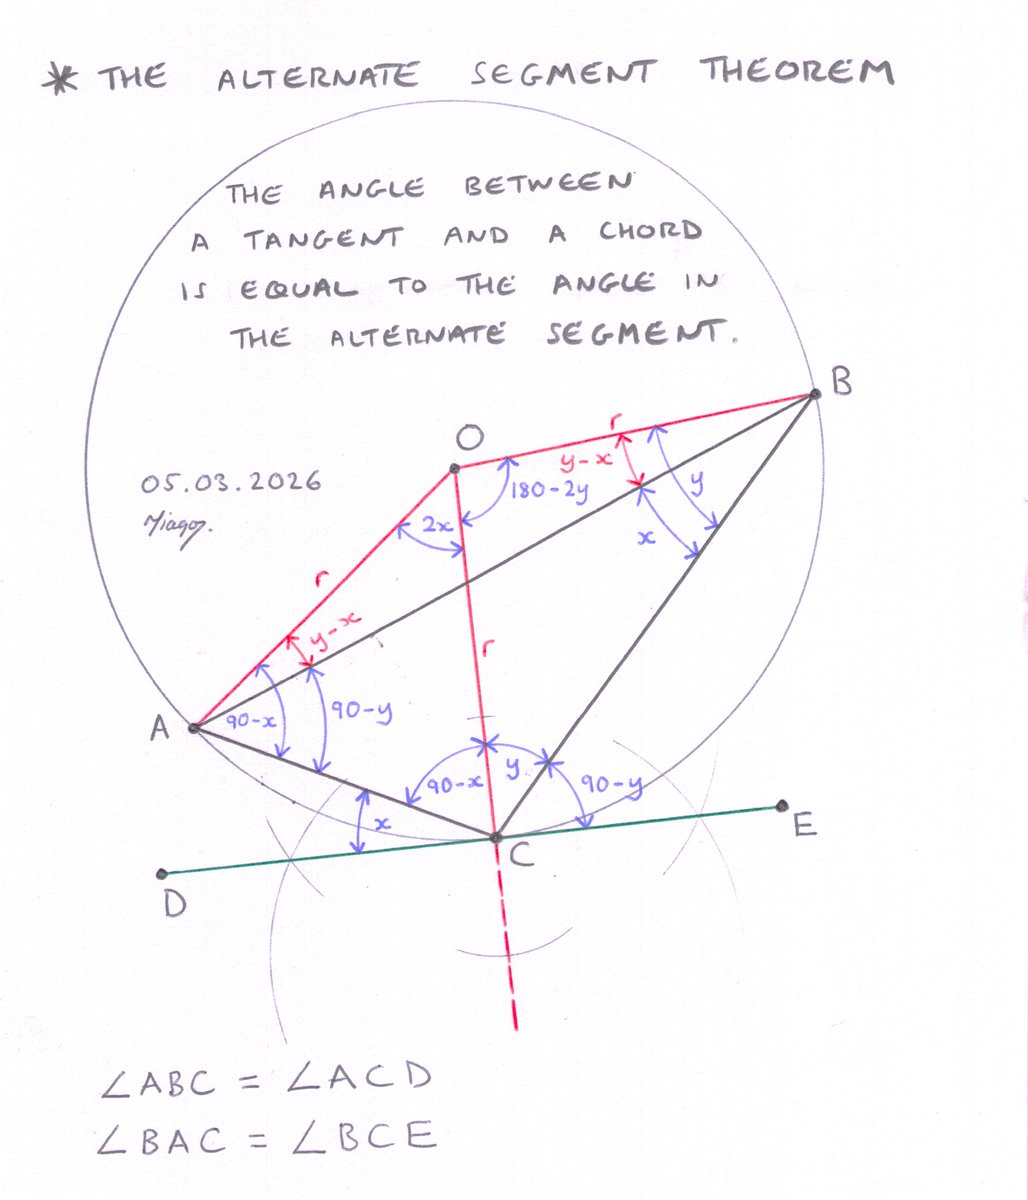 * THE ALTERNATE SEGMENT THEOREM
THE ANGLE BETWEEN
A TANGENT AND A CHORD
IS EQUAL TO THE ANGLE IN
THE ALTERNATE SEGMENT.
B
O
r
y-x
05.03.2026
180-2y
y
2x
x
r
y-x
r
A
90-x
90-y
90-x
y
90-y
x
E
C
D
∠ABC = ∠ACD
∠BAC = ∠BCE